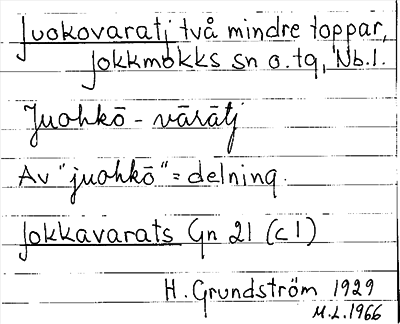 Juokovaratj två mindre toppar,
Jokkmokks sn o. tg, Nb. l.
Juohkō - vārātj
Av "juohkō" = delning.
Jokkavarats Gn 21 (c 1)
H. Grundström 1929
M.L. 1966